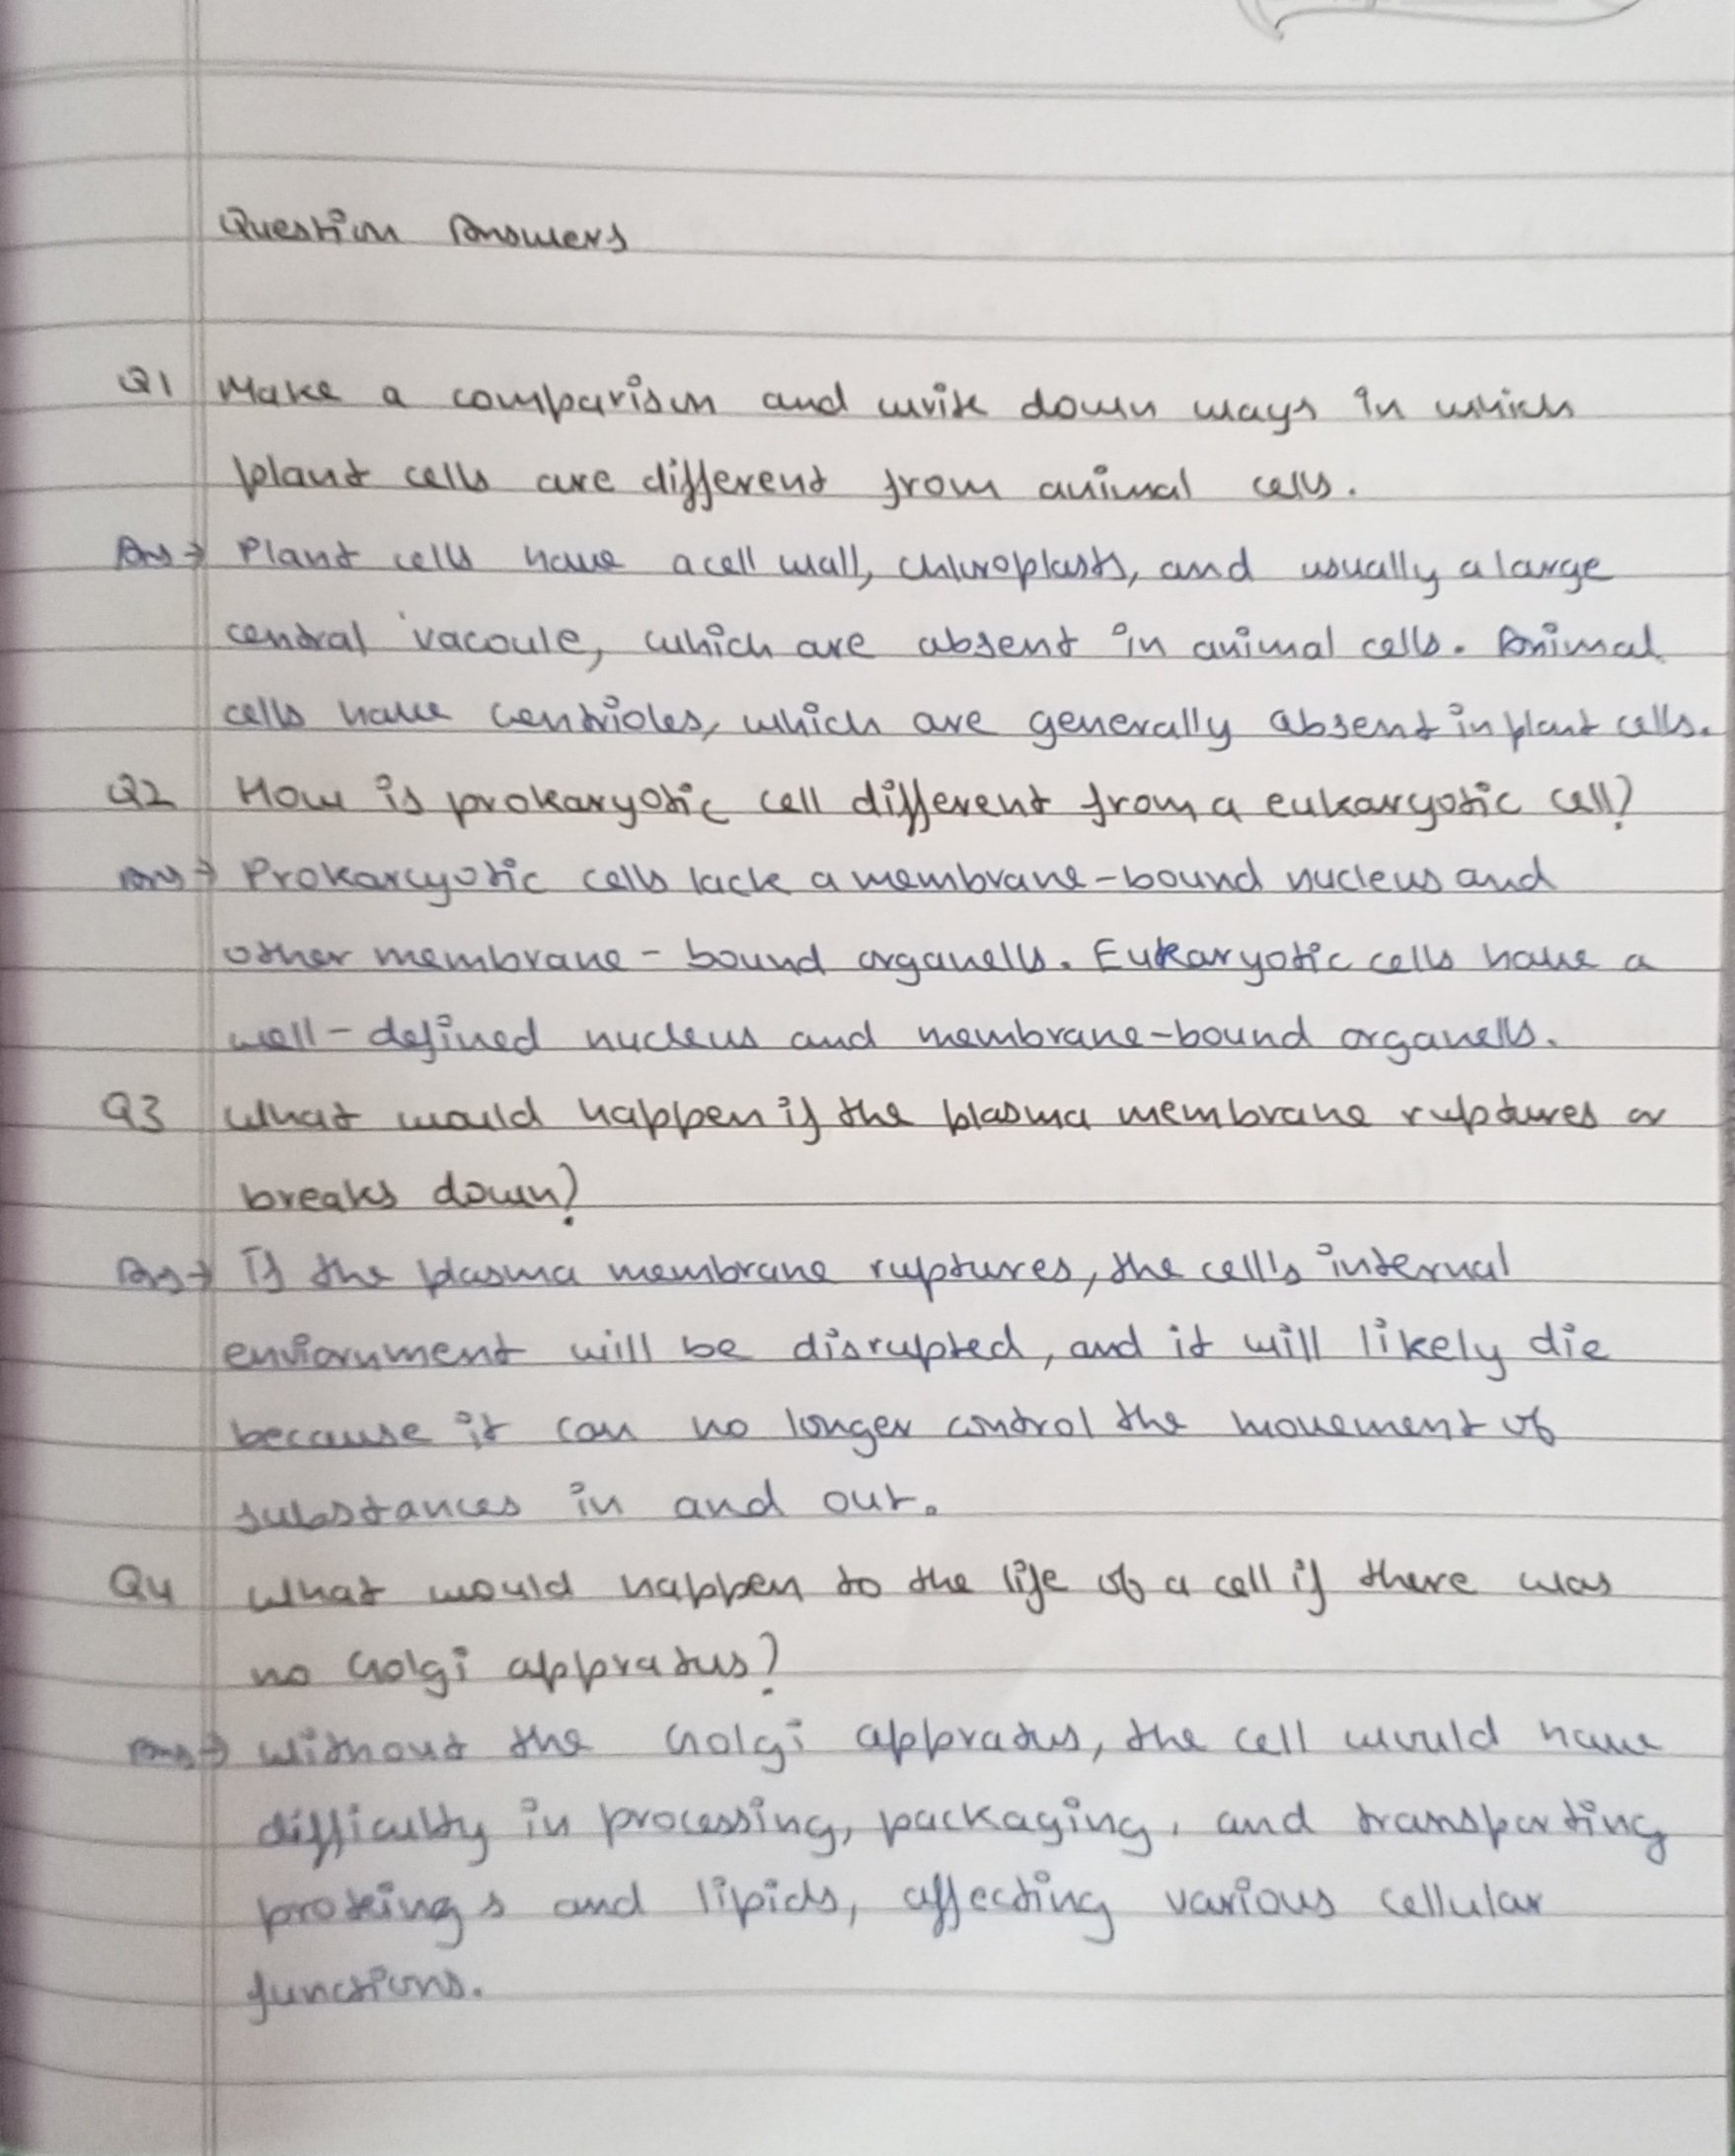 Question Answers
Q1 Make a comparison and write down ways in which
plant cells are different from animal cells.
Ans → Plant cells have a cell wall, chloroplasts, and usually a large
central vacoule, which are absent in animal cells. Animal
cells have centrioles, which are generally absent in plant cells.
Q2 How is prokaryotic cell different from a eukaryotic cell?
Ans → Prokarcyotic cells lack a membrane-bound nucleus and
other membrane - bound organells. Eukaryotic cells have a
well-defined nucleus and membrane-bound organells.
Q3 What would happen if the plasma membrane ruptures or
breaks down?
Ans → If the plasma membrane ruptures, the cell's internal
enviornment will be disrupted, and it will likely die
because it can no longer control the movement of
substances in and out.
Q4 What would happen to the life of a cell if there was
no Golgi appratus?
Ans → Without the Golgi appratus, the cell would have
difficulty in processing, packaging, and transporting
proteings and lipids, affecting various cellular
functions.